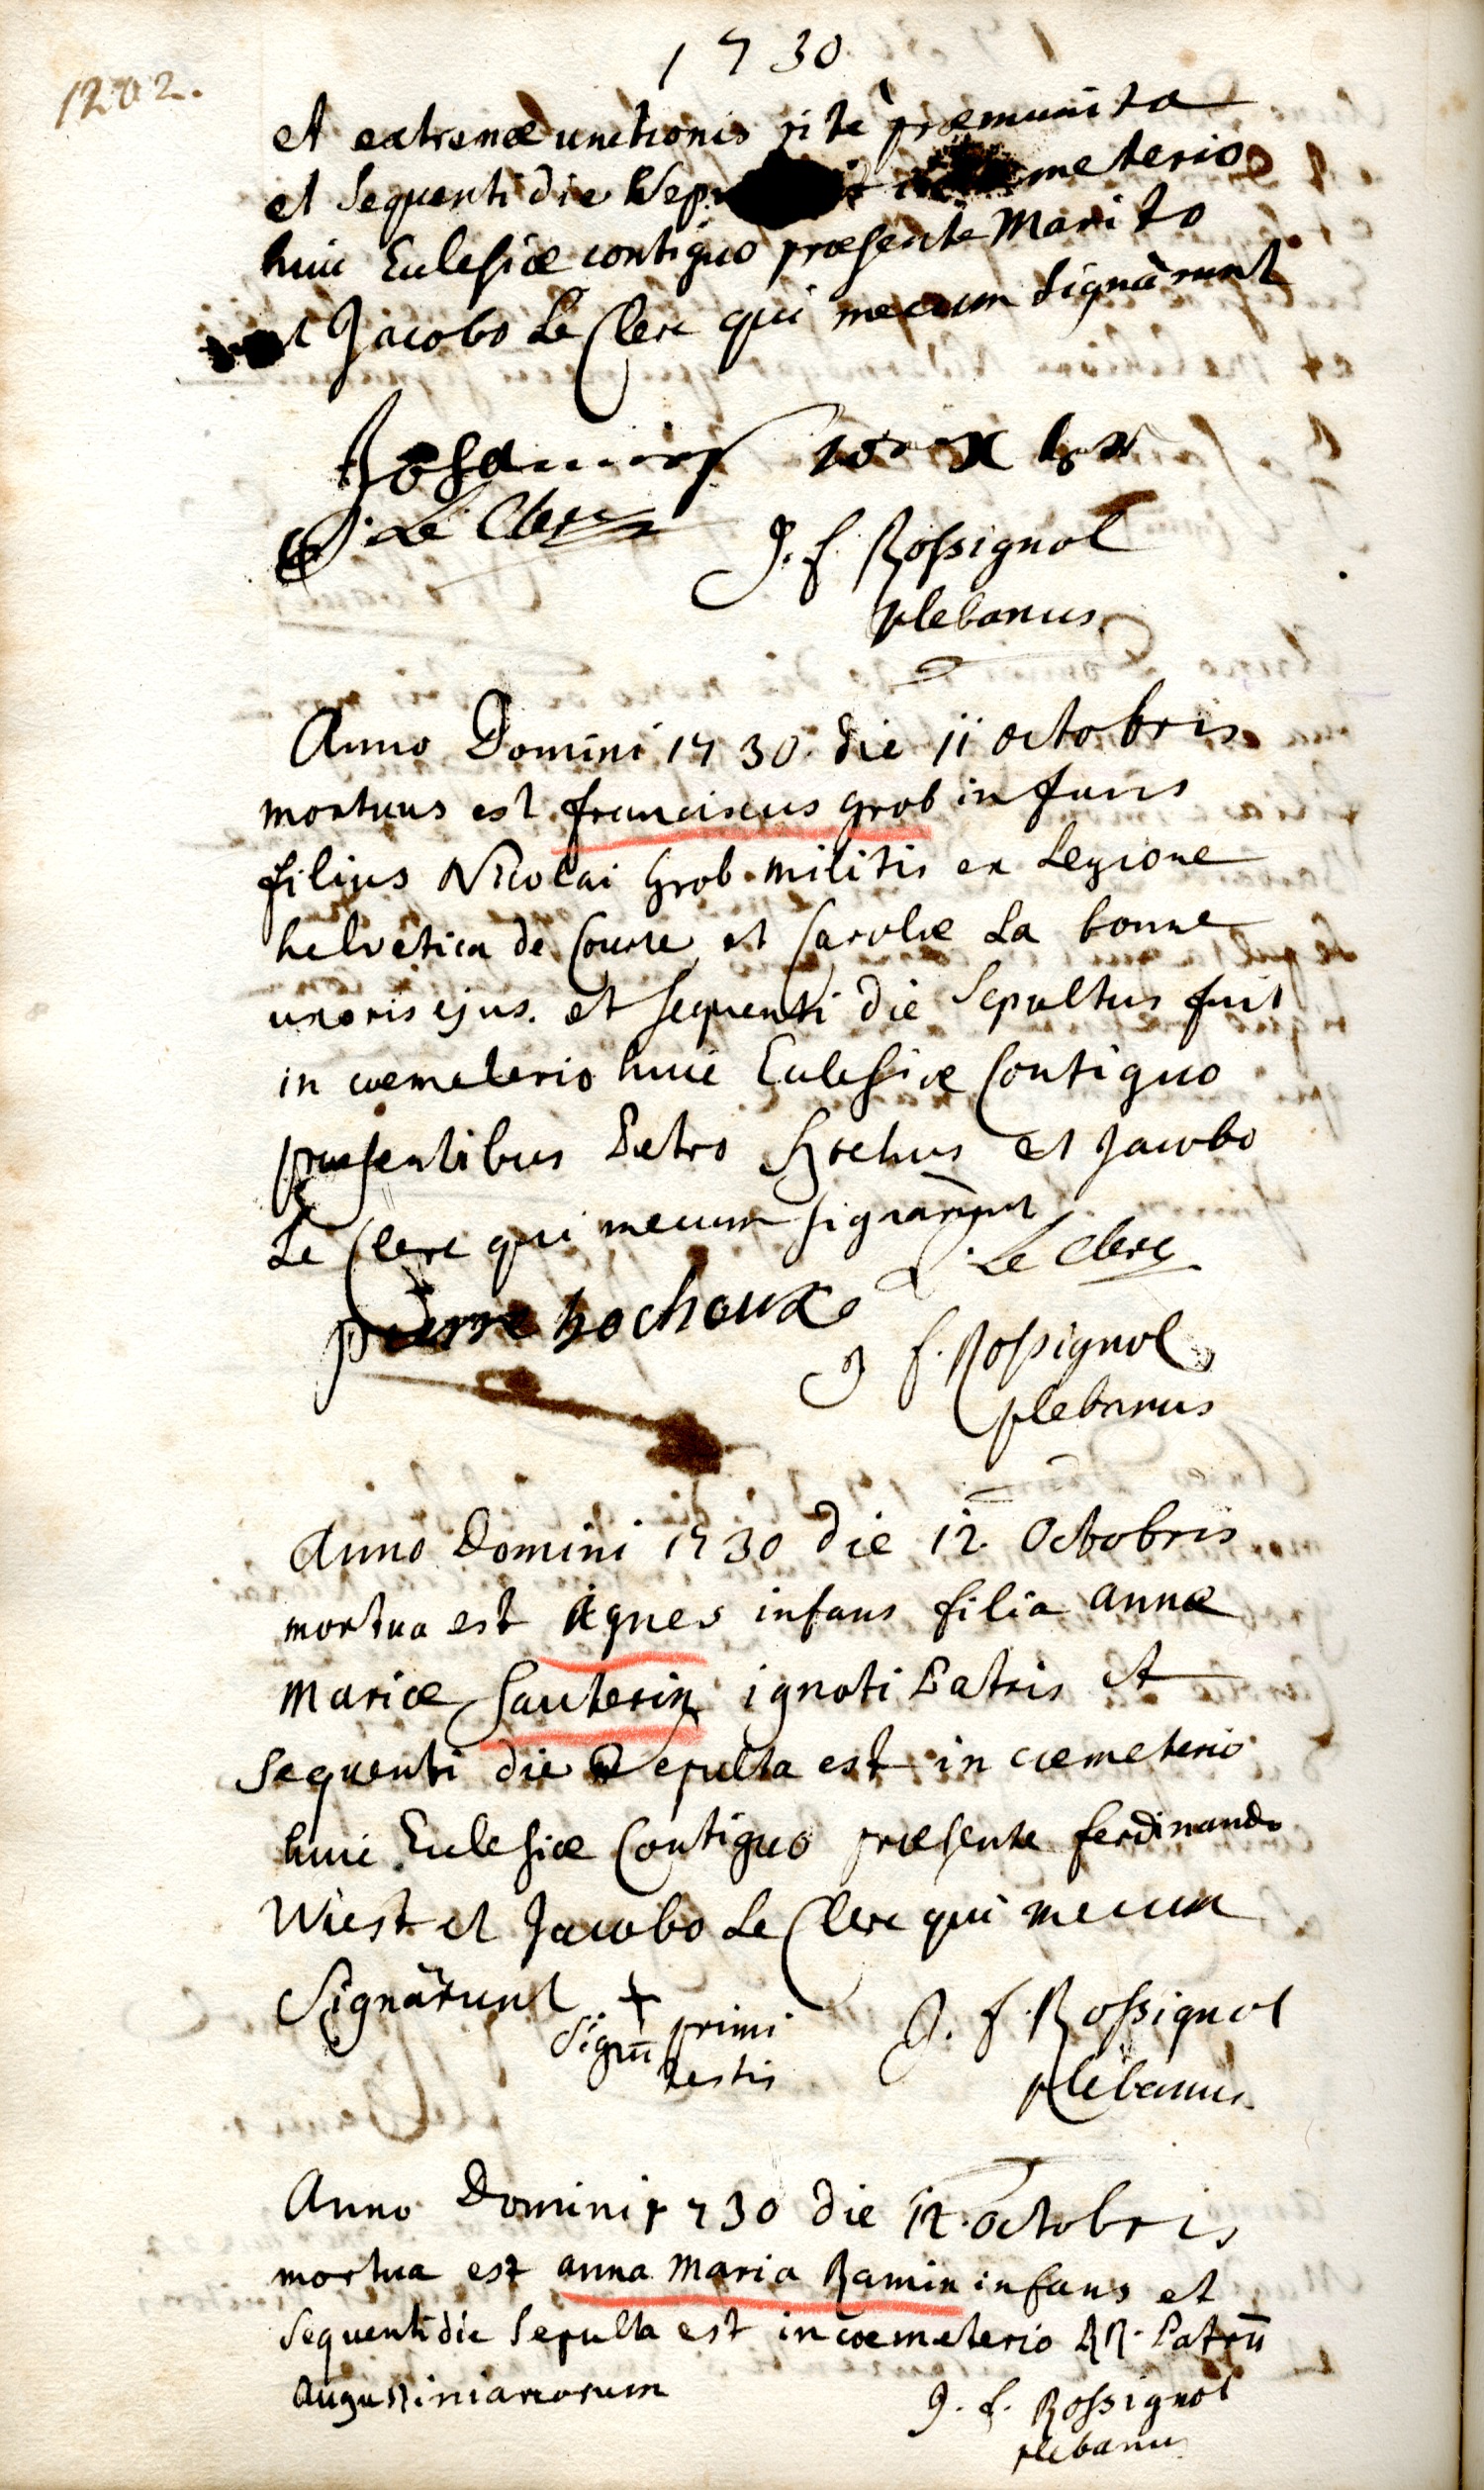 1730
1202.
et extremæ unctionis rite præmunita
et sequenti die meterio
huic Ecclesiæ contiguo præsente Marito
et Jacobo Le Clerc qui mecum signârunt
J. Le Clerc
J. f. Rossignol
plebanus
Anno Domini 1730. die 11 octobris
mortuus est franciscus grob infans
filius Nicolai grob militis ex Legione
helvetica de Courte et Carolæ La bonne
uxoris ejus. et sequenti die Sepultus fuit
in cœmeterio huic Ecclesiæ Contiguo
præsentibus Petro et Jacobo
Le Clerc qui mecum signârunt
J. Le Clerc
pierre hochoux
J f. Rossignol
plebanus
Anno Domini 1730 die 12. Octobris
mortua est Agnes infans filia annæ
Mariæ Sauterin ignoti Patris et
sequenti die Sepulta est in cœmeterio
huic Ecclesiæ Contiguo præsente ferdinando
Wiest et Jacobo Le Clerc qui mecum
Signârunt
+
Signū primi
testis
J. f. Rossignol
plebanus
Anno Domini 1730 die 12. octobris
mortua est anna Maria Ramin infans et
sequenti die Sepulta est in cœmeterio RR. Patrū
Augustinianorum
J. f. Rossignol
plebanus